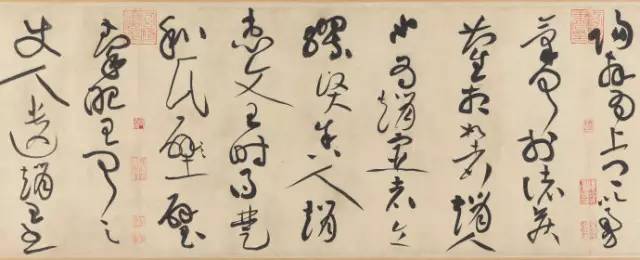 陽拜為上卿以勇
氣聞於諸侯
藺相如者趙人
也為趙宦者令
繆賢舍人趙
惠文王時得楚
和氏璧璧
秦昭王聞之
使人遺趙王書